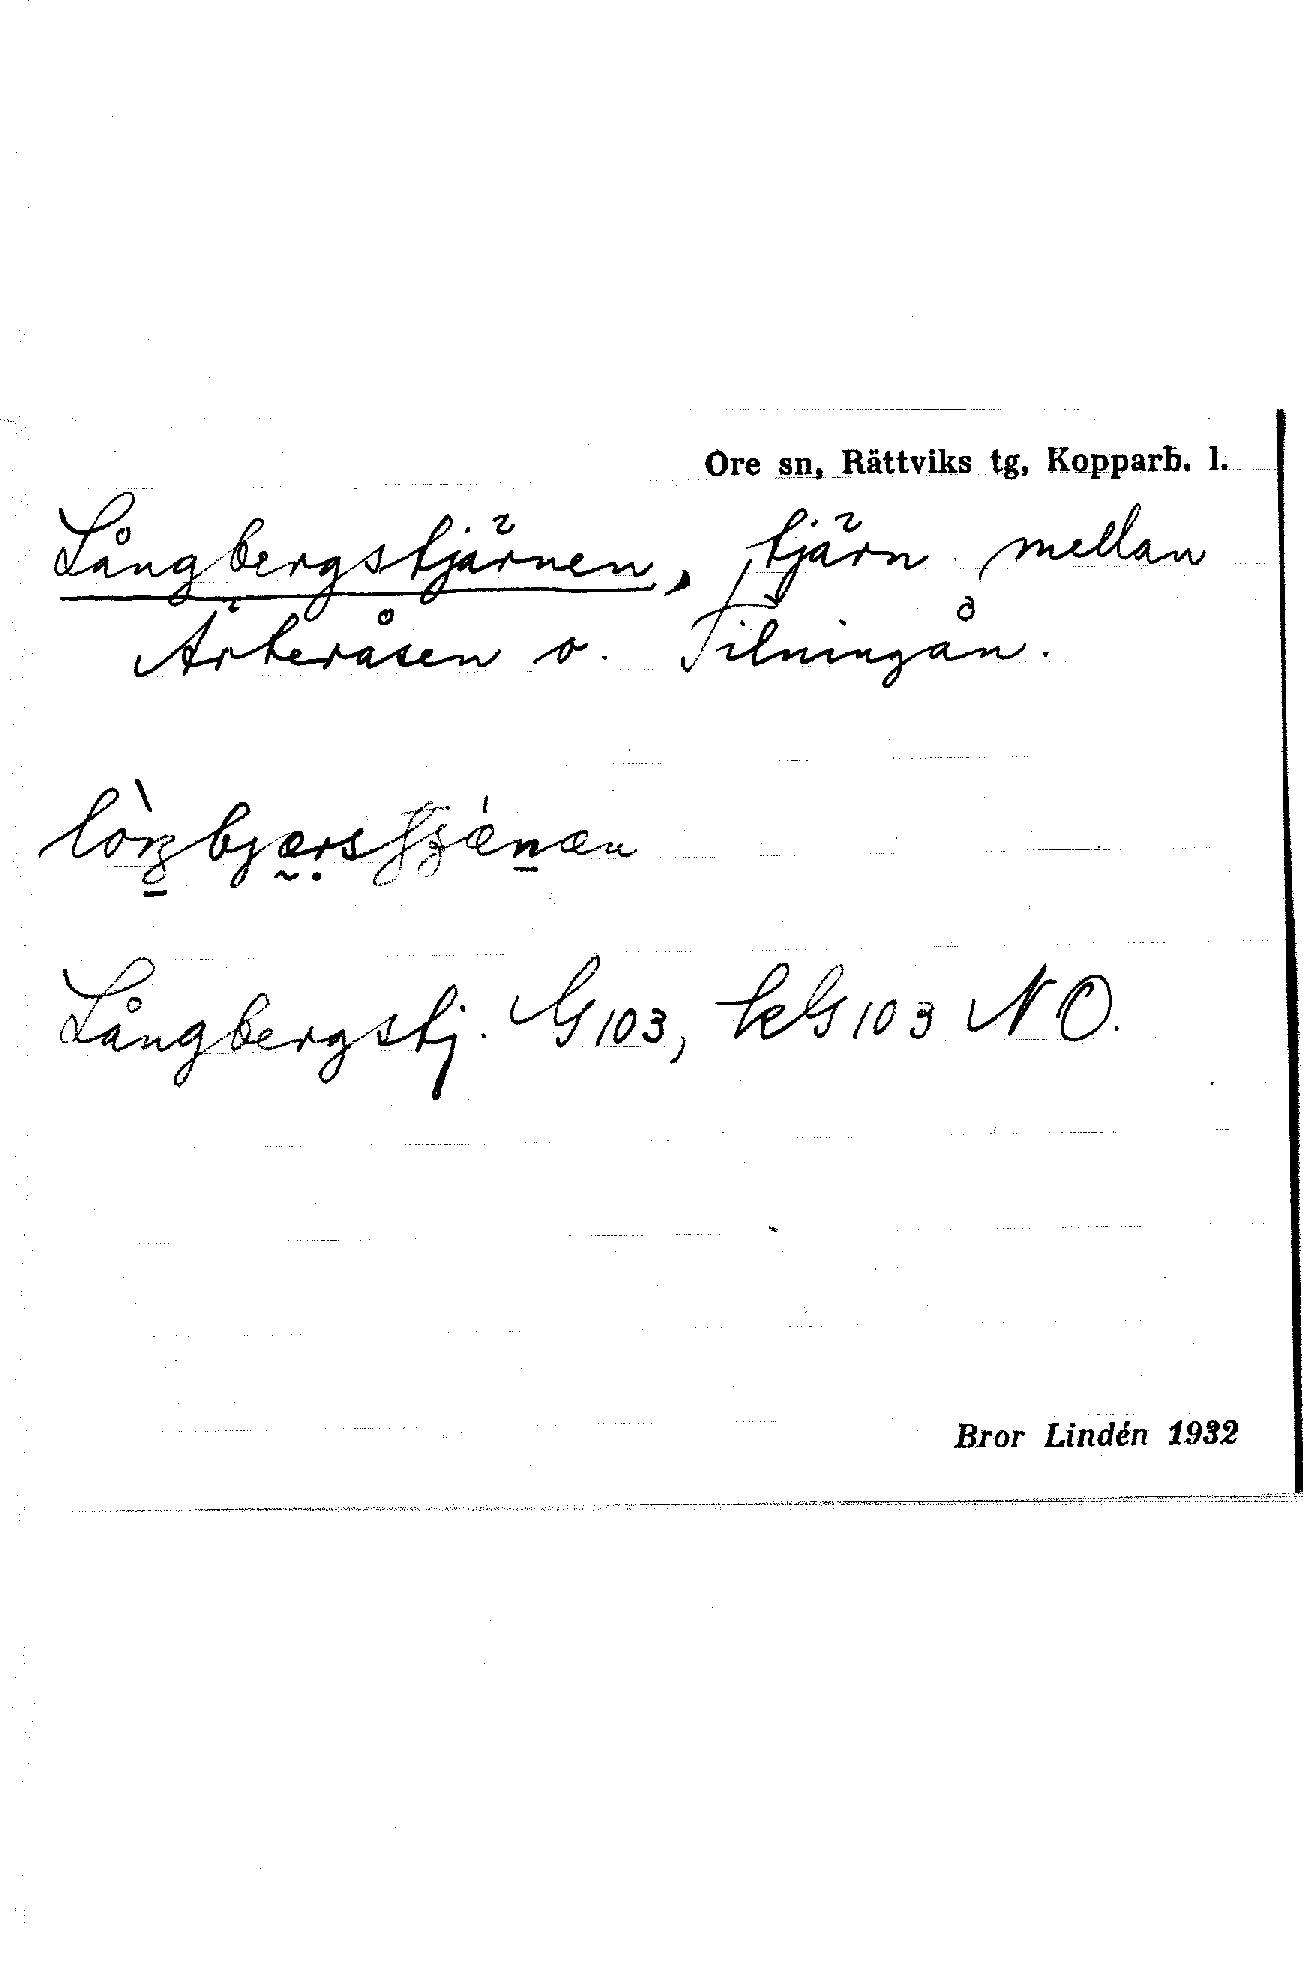 Ore sn, Rättviks tg, Kopparb. l.
Långbergstjärnen, tjärn mellan
Ärteråsen o. Tilningån.
Långbergstj. G103, kG103 NO.
Bror Lindén 1932